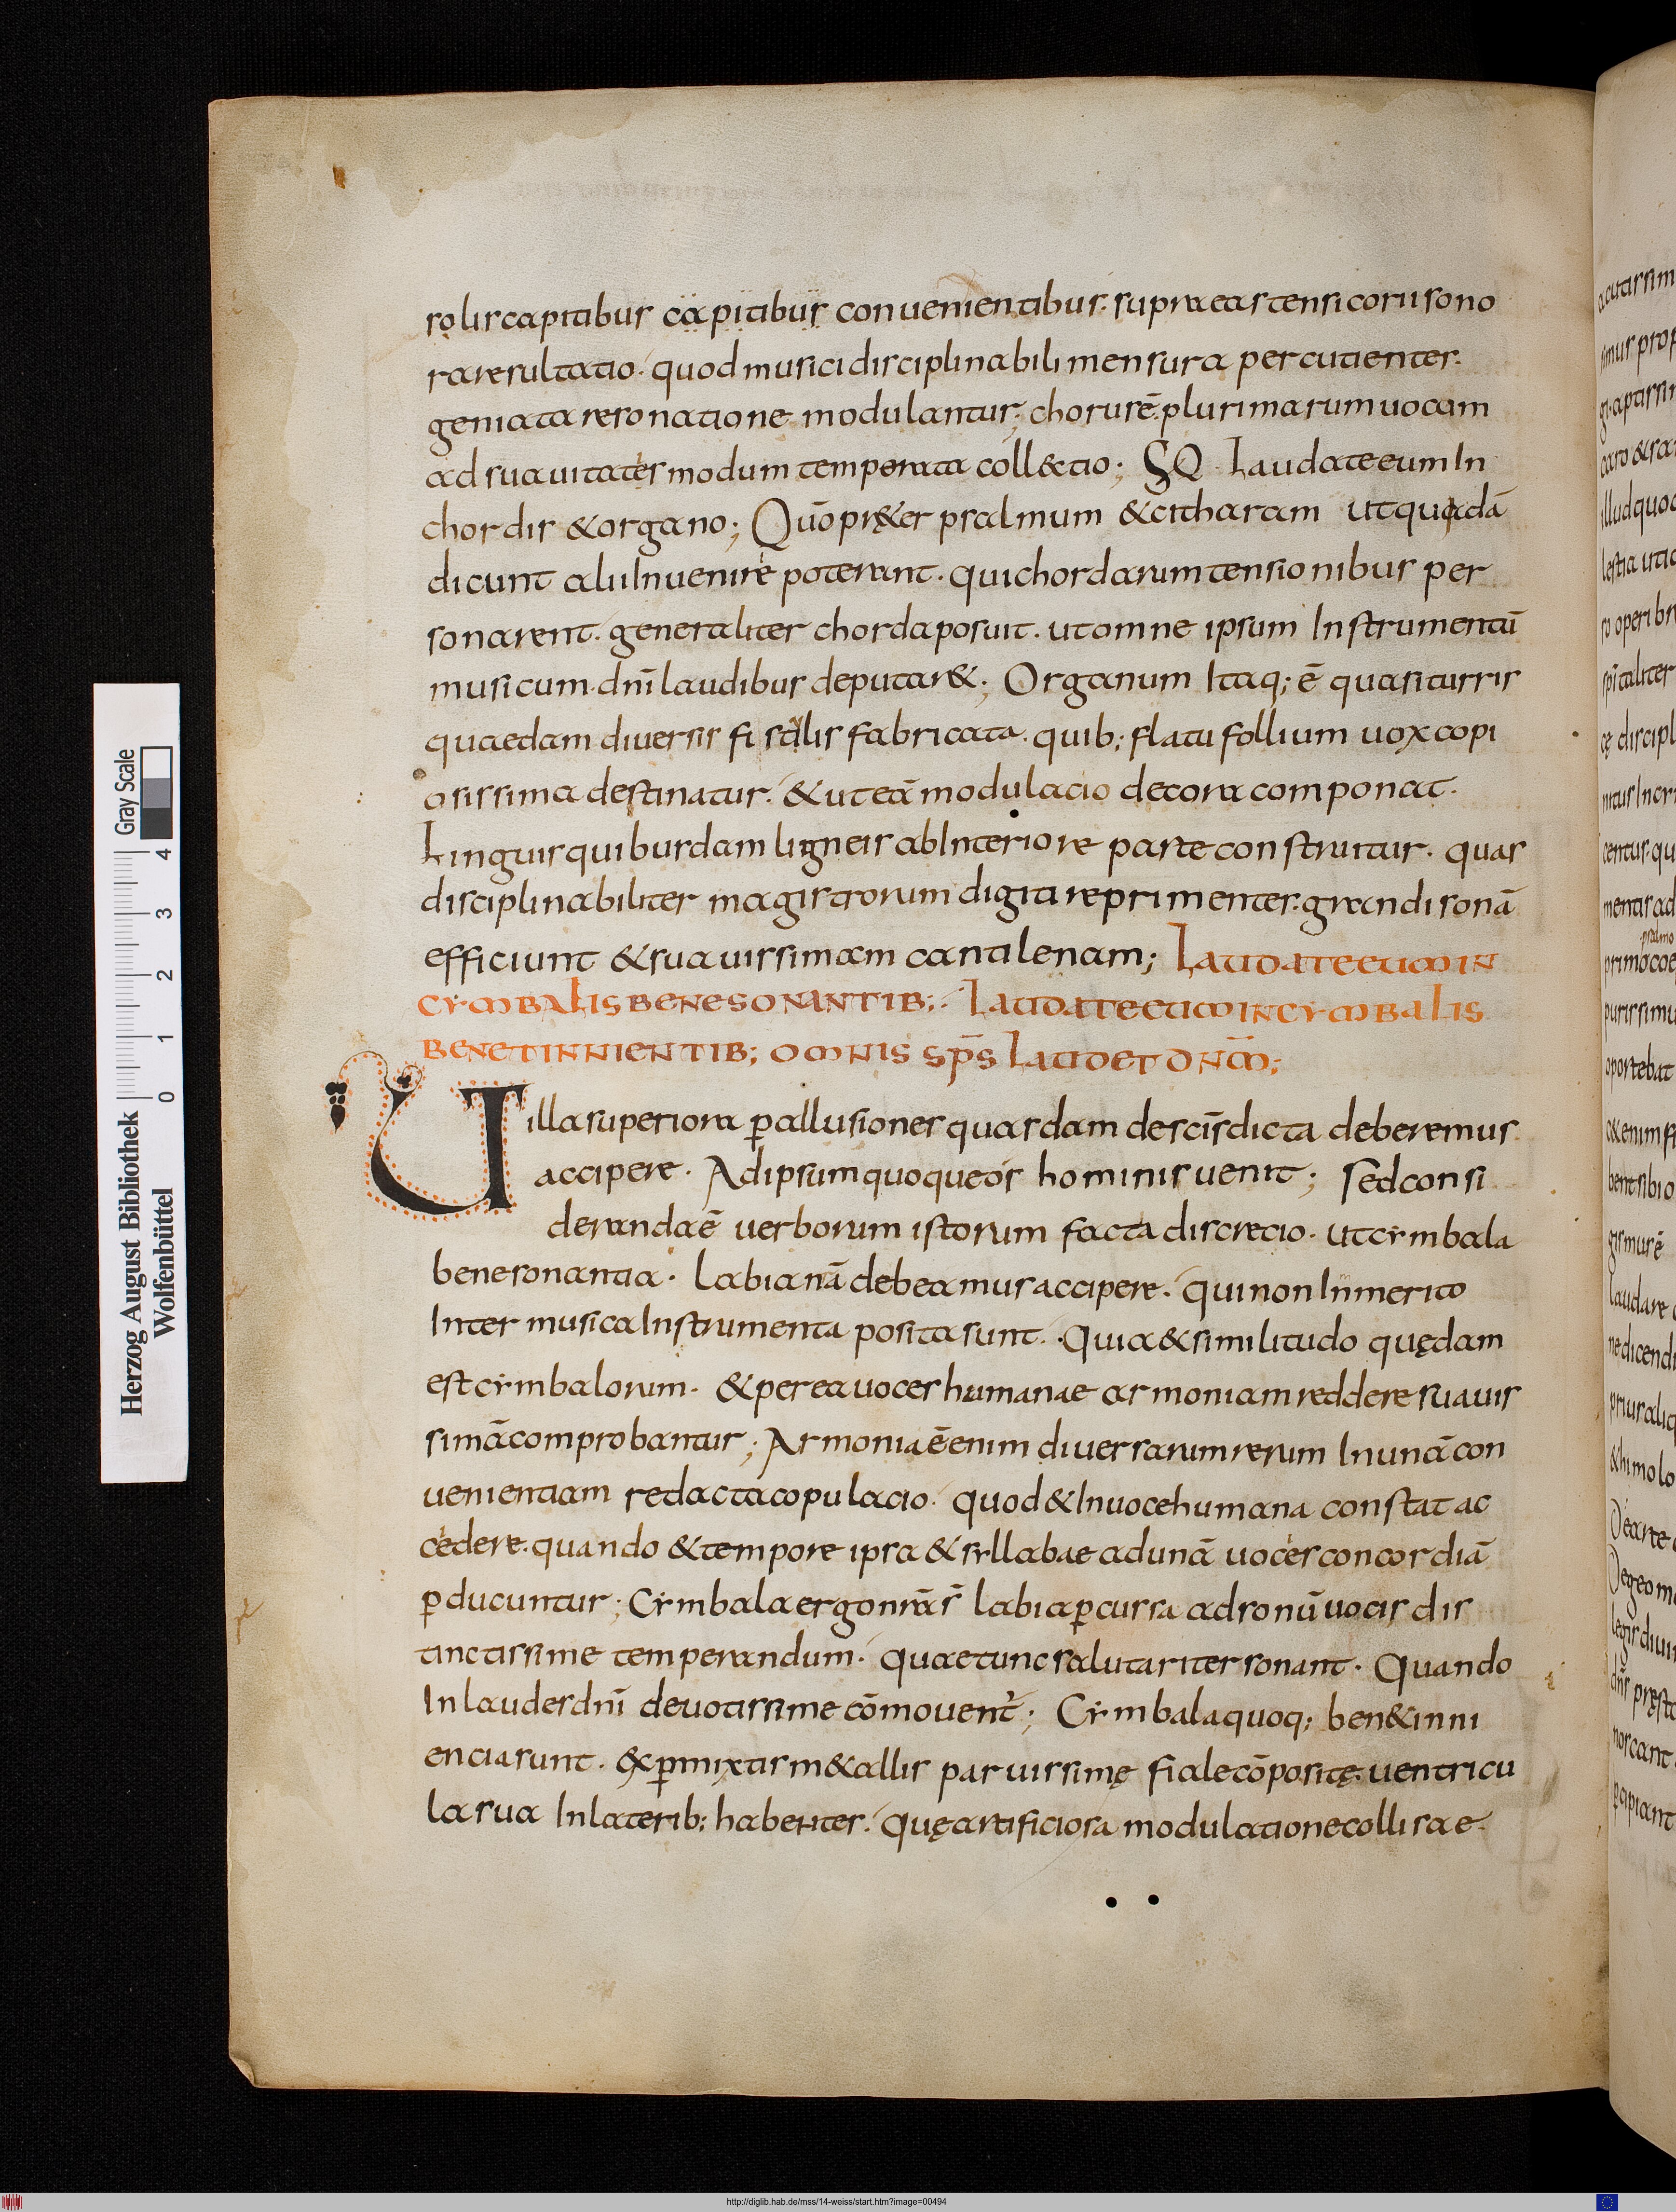 rolis captibus capitibus conuenientibus. supra eas tensi corii sono
ra resultatio. quod musici disciplinabili mensura percutientes.
geniata resonatione modulantur; chorus ē plurimarum uocum
ad suauitates modum temporata coll&ctio; SQ Laudate eum In
chordis & organo; Quō pręt&er psalmum & citharam ut quędā
dicunt alii Inuenire poterant. qui chordarum tensionibus per
sonarent. generaliter chorda posuit. ut omne ipsum Instrumentū
musicum dnī laudibus deputar&; Organum Itaq; ē quasi turris
quaedam diuersis fistulis fabricata. quib; flatu follium uox copi
osissima destinatur. & ut eā modulacio decora componat.
Linguis quibusdam ligneis ab Interiore parte construitur. quas
disciplinabiliter magistrorum digiti reprimentes. grandisonā
efficiunt & suauissimam cantilenam; Laudate eum in
cymbalis benesonantib; Laudate eum in cymbalis
bene tinnientib; omnis sps̄ laudet dnm̄;
Ut illa superiora p̄ allusiones quasdam de scīs dicta deberemus
accipere. Ad ipsum quoque os hominis uenit; Sed consi
deranda ē uerborum istorum facta discrecio. ut cymbala
benesonantia. labia nr̄ā debeamus accipere. qui non Inmerito
Inter musica Instrumenta posita sunt. Quia & similitudo quędam
est cymbalorum. & per ea uoces humanae armoniam reddere suauis
simā comprobantur; Armonia ē enim diuersarum rerum In unā con
uenientiam redacta copulacio. quod & In uoce humana constat ac
cedere. quando & tempore ipsa & syllabae ad unā uoces concordiā
p̄ducuntur; Cymbala ergo nr̄ā s̄ labia p̄cussa ad sonū uocis dis
tinctissime temperandum. quae tunc salutariter sonant. Quando
In laudes dnī deuotissime cōmouent̄; Cymbala quoq; ben&inni
encia sunt. ex p̄mixtis m&allis paruissimę fiale cōpositę. uentricu
la sua In laterib; habentes. quę artificiosa modulatione collisae
Herzog August Bibliothek
Wolfenbüttel
0 1 2 3 4
Gray Scale
http://diglib.hab.de/mss/14-weiss/start.htm?image=00494